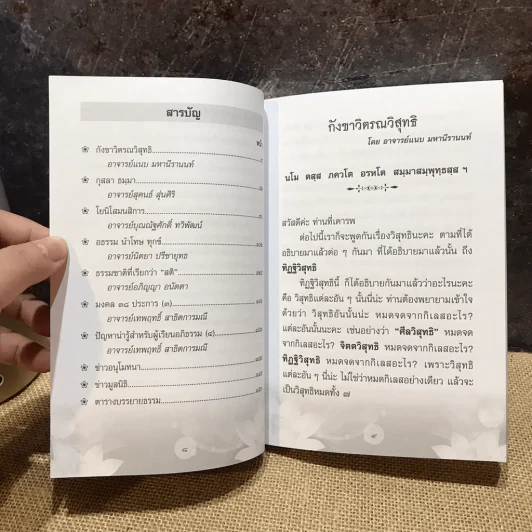 สารบัญ
หน้า
กังขาวิตรณวิสุทธิ
อาจารย์แนบ มหานีรานนท์
กุสลา ธมฺมา
อาจารย์สุคนธ์ สุ่นศิริ
โยนิโสมนสิการ
อาจารย์บุณณัฐศักดิ์ ทวิพัฒน์
อธรรม นำโทษ ทุกข์
อาจารย์นิตยา ปรีชายุทธ
ธรรมชาติที่เรียกว่า "สติ"
อาจารย์อภิญญา อนัตตา
มงคล ๓๘ ประการ (๓)
อาจารย์เทพฤทธิ์ สาธิตการมณี
ปัญหาน่ารู้สำหรับผู้เรียนอภิธรรม (๔)
อาจารย์เทพฤทธิ์ สาธิตการมณี
ข่าวอนุโมทนา
ข่าวมูลนิธิ
ตารางบรรยายธรรม
๘
กังขาวิตรณวิสุทธิ
โดย อาจารย์แนบ มหานีรานนท์
นโม ตสฺส ภควโต อรหโต สมฺมาสมฺพุทฺธสฺส ฯ
สวัสดีค่ะ ท่านที่เคารพ
ต่อไปนี้เราก็จะพูดกันเรื่องวิสุทธินะคะ ตามที่ได้
อธิบายมาแล้วต่อ ๆ กันมา ที่ได้อธิบายมาแล้วนั้น ถึง
ทิฏฐิวิสุทธิ
ทิฏฐิวิสุทธินี้ ก็ได้อธิบายกันมาแล้วว่าอะไรนะคะ
คือ วิสุทธิแต่ละอัน ๆ นั้นนี่น่ะ ท่านต้องพยายามเข้าใจ
ด้วยว่า วิสุทธิอันนั้นน่ะ หมดจดจากกิเลสอะไร?
แต่ละอันนั้นนะคะ เช่นอย่างว่า "ศีลวิสุทธิ" หมดจด
จากกิเลสอะไร? จิตตวิสุทธิ หมดจดจากกิเลสอะไร?
ทิฏฐิวิสุทธิ หมดจดจากกิเลสอะไร? เพราะวิสุทธิ
แต่ละอัน ๆ นี่น่ะ ไม่ใช่ว่าหมดกิเลสอย่างเดียว แล้วจะ
เป็นวิสุทธิหมดทั้ง ๗
๙